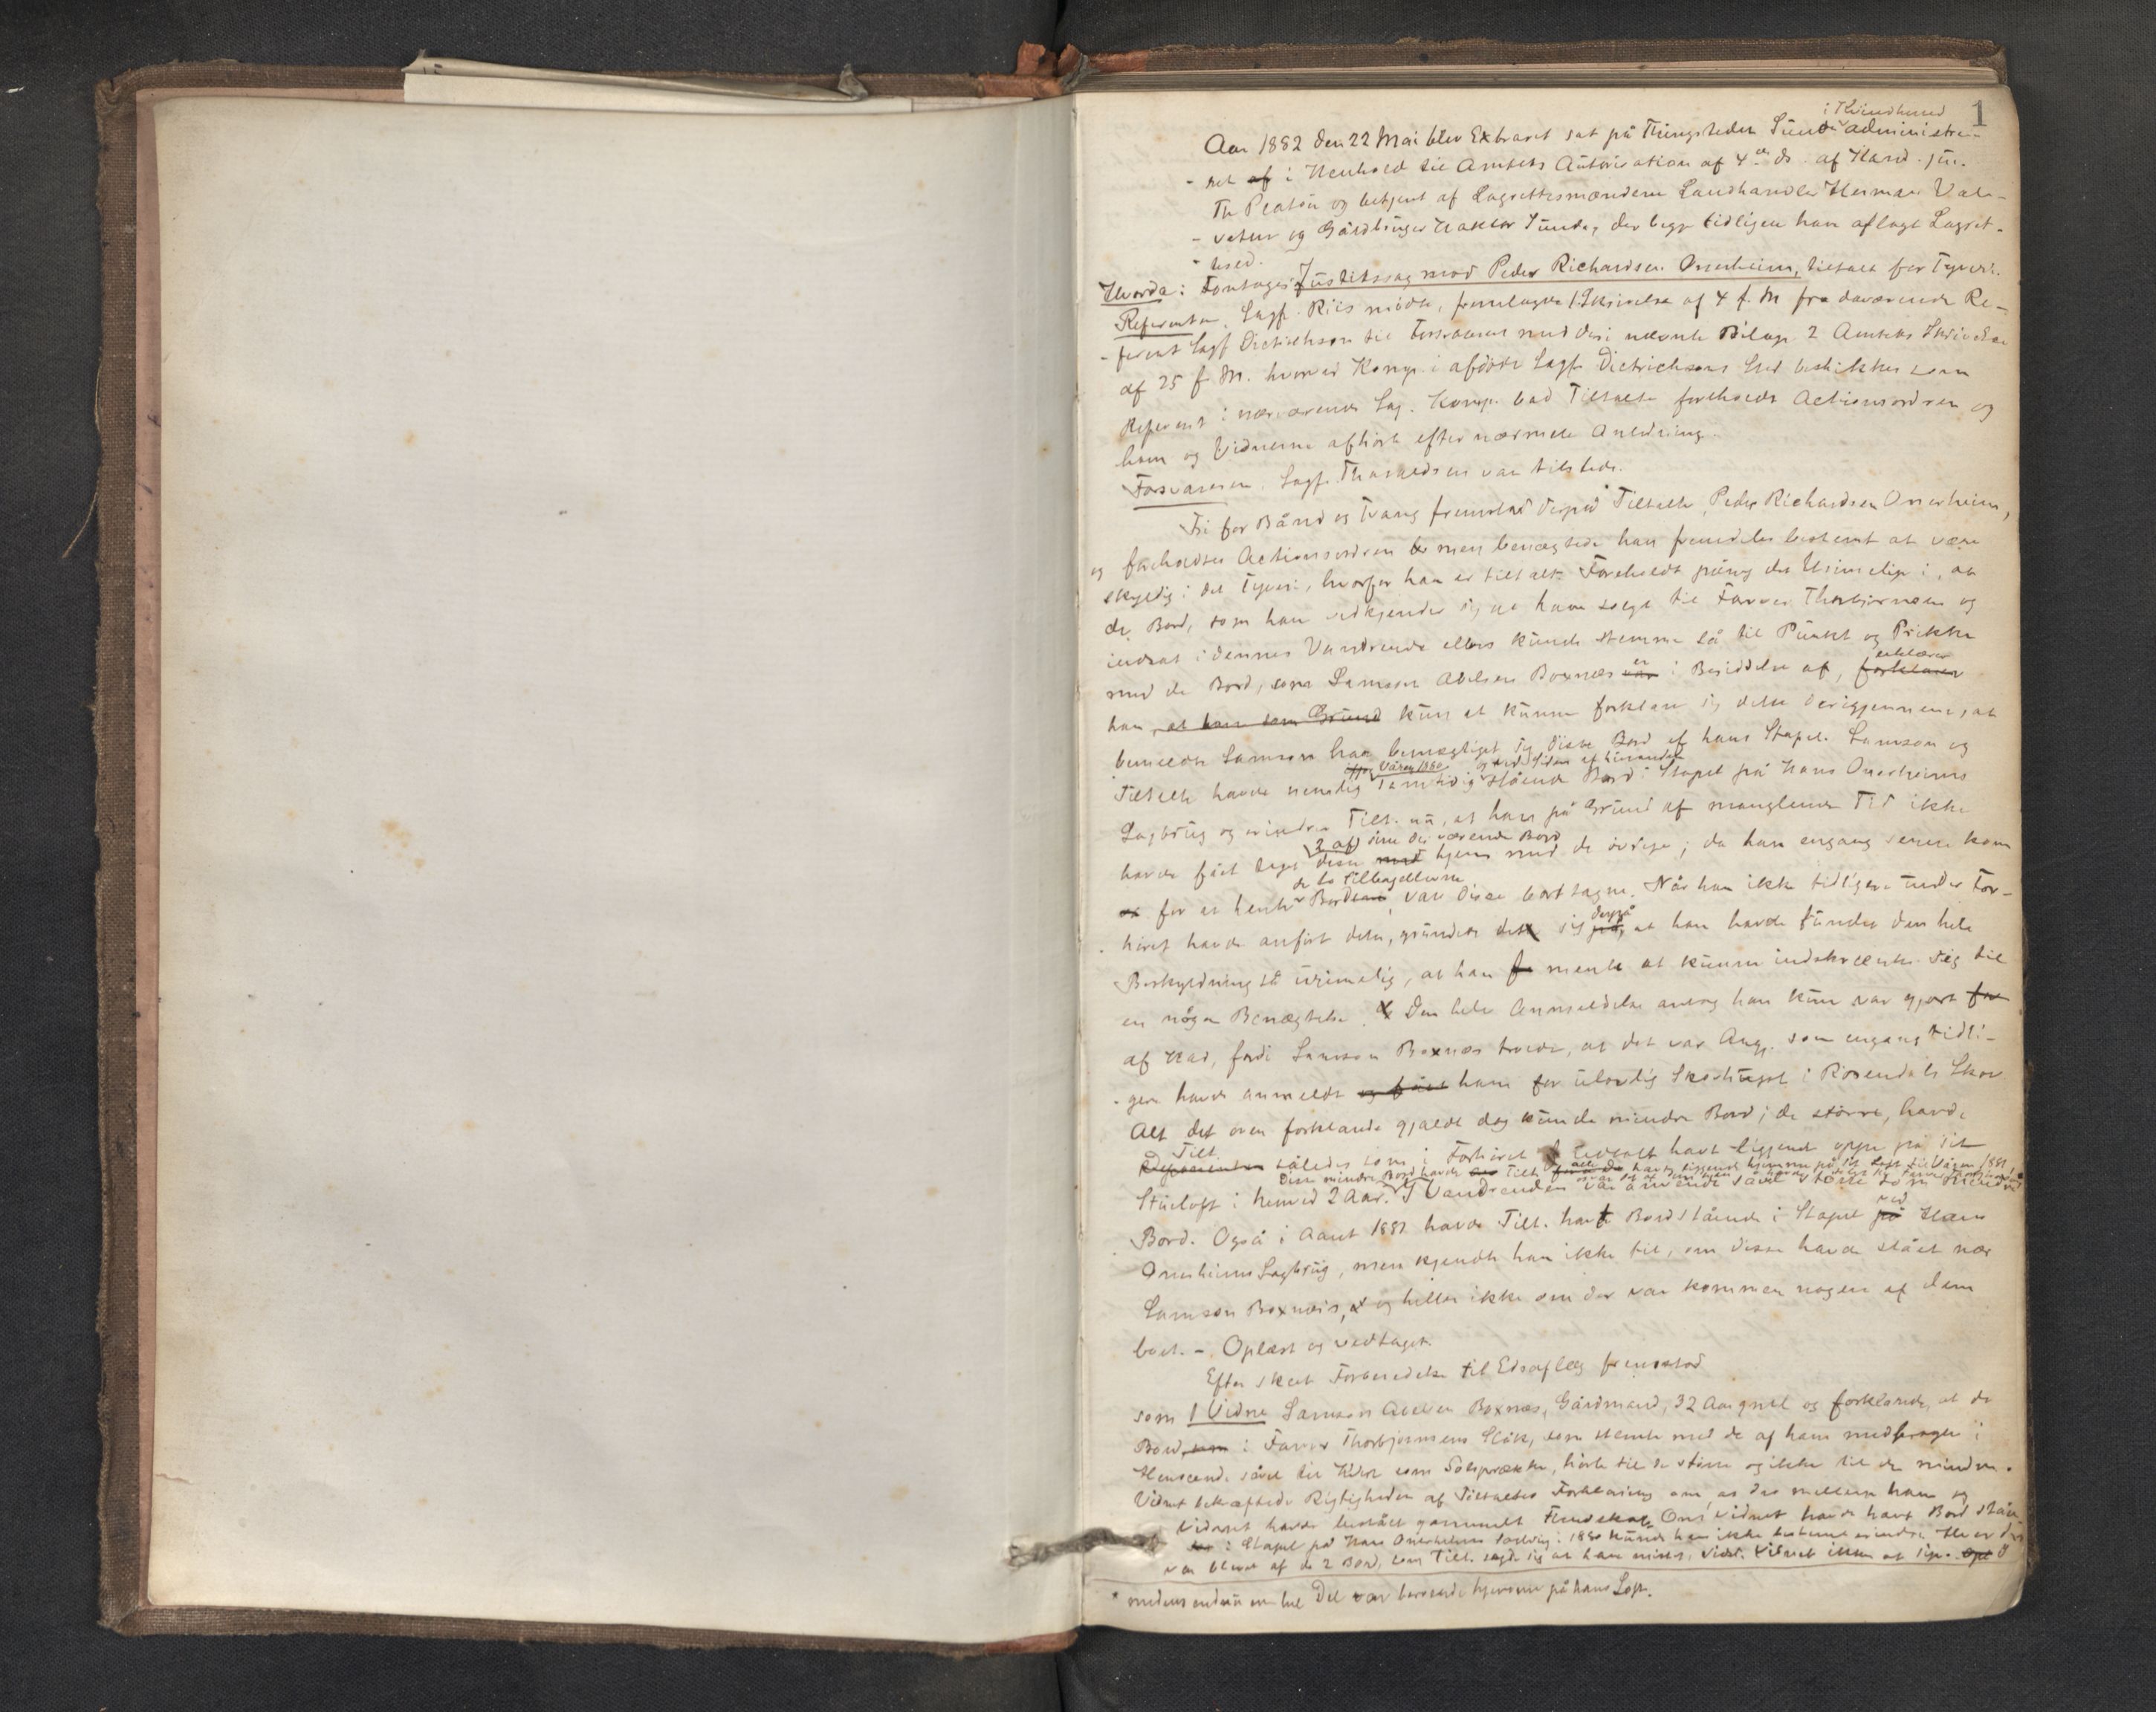 1
i Kvindherred
Aar 1882 den 22 Mai blev Extraret sat på Thingstedet Sunde administre-
- ret af i Henhold til Amtets Autorisation af 4de ds. af Kand. jur.
Th Platou og betjent af Lagrettesmændene Landhandler Herman Vale-
- vatne og Gårdbruger Sunde, der begge tidligere have aflagt Lagret-
- tesed.
Hvorda: Foretages Justitssag mod Peder Richardsen Onerheim, tiltalt for Tyveri.
Referenten, Sagf. Riis mødte, fremlagde 1 Skrivelse af 4 f. M fra daværende Re-
- ferent Sagf Dietrichson til Forsvareren med deri nævnte Bilage 2 Amtets Skrivelse
af 25 f. M. hvorved Komp. i afdøde Sagf. Dietrichsons Sted beskikkes som
Referent i nærværende Sag. Komp. bad Tiltalte foreholdt Actionsordren og
ham og Vidnerne afhørt efter nærmere Anledning.
Forsvareren, Sagf. Thorvaldsen var tilstede.
Fri for Bånd og Tvang fremstod derpå Tiltalte, Peder Richardsen Onerheim,
og foreholdtes Actionsordren men benægtede han fremdeles bestemt at være
skyldig i det Tyveri, hvorfor han er tiltalt. Foreholdt påny det Urimelige i, at
de Bord, som han vedkjender sig at have solgt til Farver Thorbjørnsen og
indsat i dennes Vandrende ellers kunde stemme så til Punkt og Prikke
med de Bord, som Samson Abelsen Boxnæs var er i Besiddelse af, forklarer erklærer
han, at han som Grund kun at kunne forklare sig dette derigjennem, at
bemeldte Samson har bemægtiget sig disse Bord af hans Stapel. Samson og
Våren 1880 og ved Siden af hinanden
Tiltalte havde nemlig samtidig stående Bord i Stapel på Hans Onerheims
Sagbrug og erindrer Tilt. nu, at han på Grund af manglende Tid ikke
2 af sine der værende Bord
havde fået taget disse med hjem med de øvrige; da han engang senere kom
de to tilbageblevne
for at hente Bordene, var disse borttagne. Når han ikke tidligere under For-
derpå
- høret havde anført dette, grundede det sig på, at han havde fundet den hele
Beskyldning så urimelig, at han mente at kunne indskrænke sig til
en nøgen Benægtelse. Den hele Anmeldelse antog han kun var gjort for
af Had, fordi Samson Boxnæs troede, at det var Ang. som engang tidli-
- gere havde anmeldt og fået ham for ulovlig Skovhugst i Rosendals Skov
Alt det oven forklarede gjaldt dog kun de mindre Bord; de større, havde
Tilt.
Deponenten således som i Forhøret havt liggende oppe på sit
Disse mindre Bord havde Tilt. havt liggende hjemme på sit Loft til Våren 1881
Stueloft i henved 2 Aar. I Vandrenden var anvendt såvel større som mindre
ved
Bord. Også i Aaret 1881 havde Tilt. havt Bord stående i Stapel på Hans
Onerheims Sagbrug, men kjendte han ikke til, om disse havde stået nær
Samson Boxnæs, og heller ikke om der var kommen nogen af dem
bort. - Oplæst og vedtaget.
Efter skeet Forberedelse til Edsaflæg fremstod
som 1 Vidne Samson Abelsen Boxnæs, Gårdmand, 32 Aar gml og forklarede, at de
Bord, som i Farver Thorbjørnsens Stök, som stemte med de af ham medbragte i
Henseende såvel til som Solsprække, hørte til de større og ikke til de mindre.
Vidnet bekræftede Rigtigheden af Tiltaltes Forklaring om, at der mellem ham og
Vidnet havde bestået gammelt Fiendskab. Om Vidnet havde havt Bord ståen-
de i Stapel på Hans Onerheims Sagbrug i 1880 kunde han ikke bestemt erindre. Hvor der
var blevet af de 2 Bord, som Tilt. sagde sig at have mistet, vidste Vidnet ikke at sige.
* medens endnu en hel Del var beroende hjemme på hans Loft.